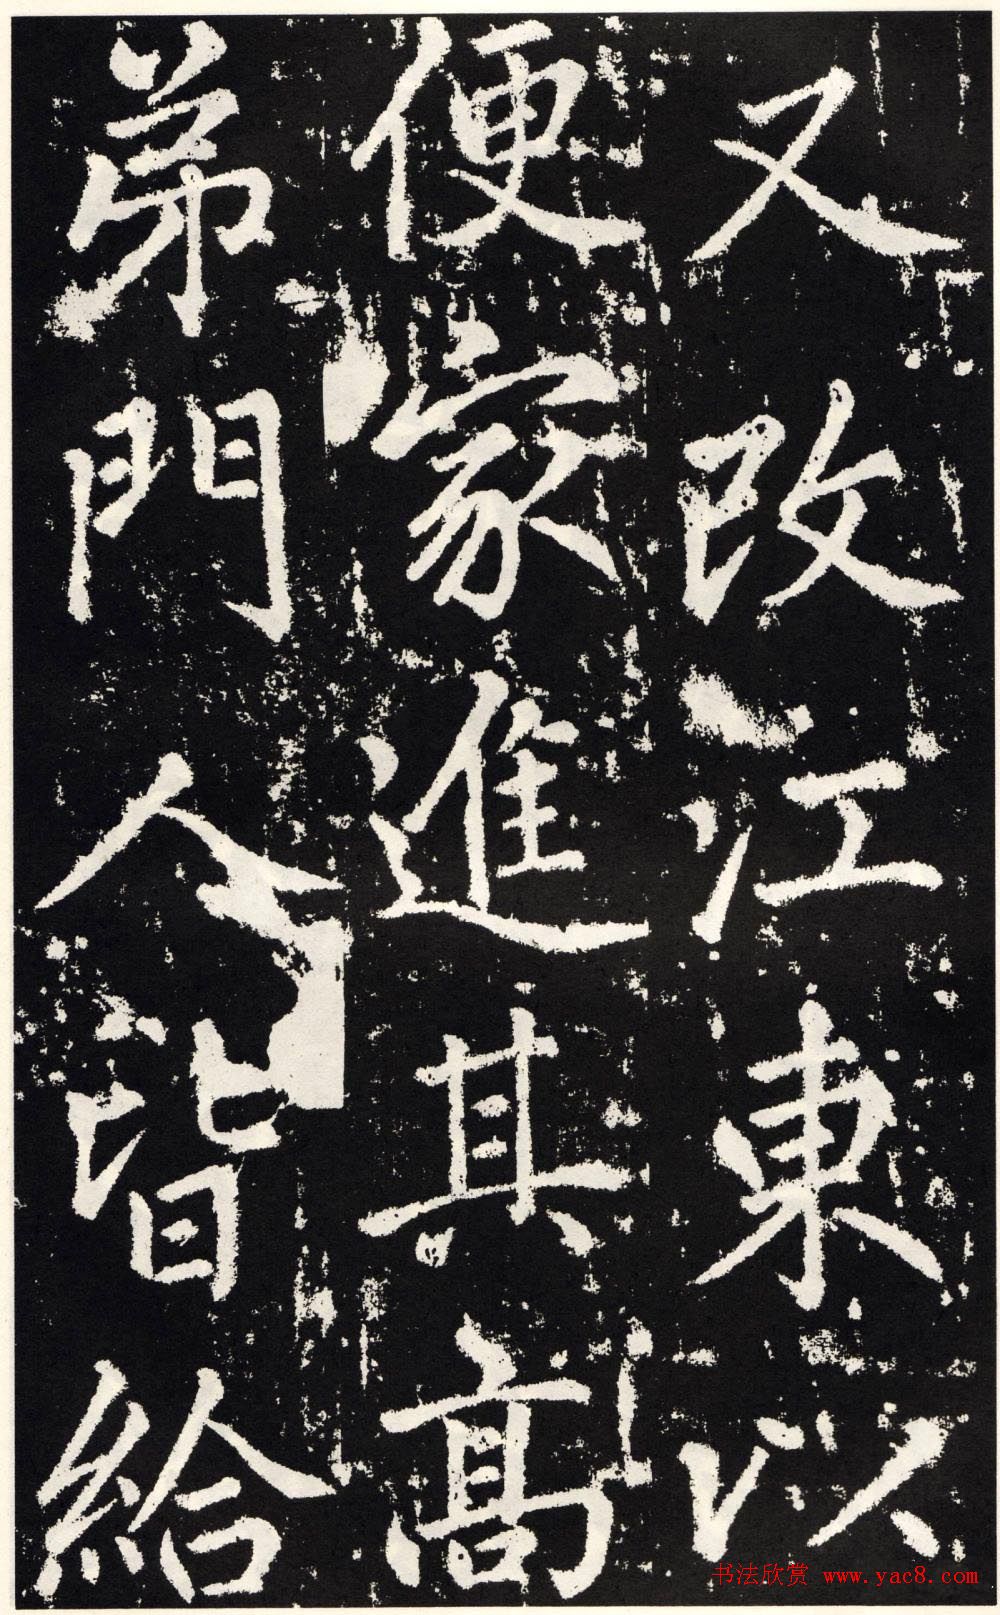 又改江東以
便家進其高
弟門人皆給
书法欣赏 www.yac8.com